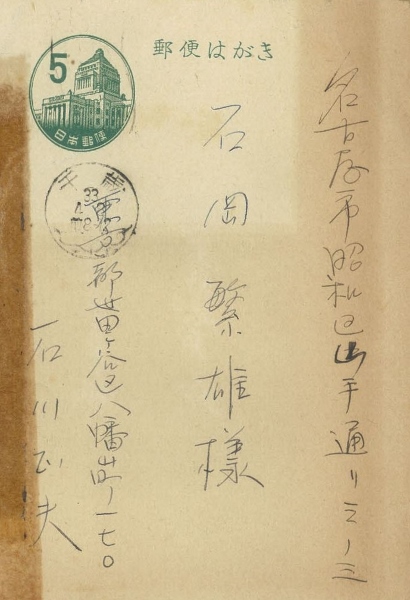 郵便はがき
5
日本郵便
千歳
33
名古屋市昭和区山手通リ三ノ三
石岡繁雄様
東京都世田ヶ谷区八幡山町一七〇
石川正夫